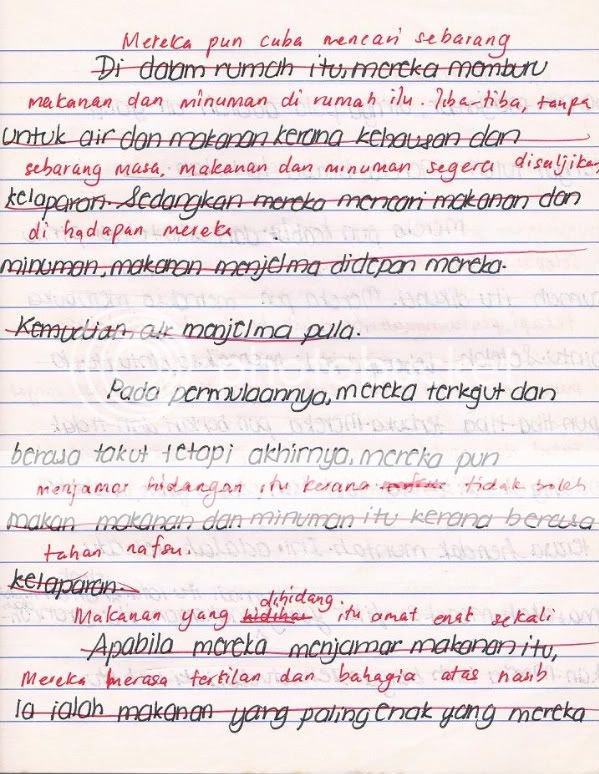 Mereka pun cuba mencari sebarang
Di dalam rumah itu, mereka memburu
makanan dan minuman di rumah itu. Tiba-tiba, tanpa
untuk air dan makanan kerana kehausan dan
sebarang masa, makanan dan minuman segera disuljikan
kelaparan. Sedangkan mereka mencari makanan dan
di hadapan mereka
minuman, makanan menjelma didepan mereka.
Kemudian, air menjelma pula.
Pada permulaannya, mereka terkejut dan
berasa takut tetapi akhirnya, mereka pun
menjamar hidangan itu kerana tidak boleh
makan makanan dan minuman itu kerana berasa
tahan nafsu.
kelaparan.
dihidang
Makanan yang itu amat enak sekali
Apabila mereka menjamar makanan itu,
Mereka merasa terkilan dan bahagia atas nasib
Ia ialah makanan yang paling enak yang mereka